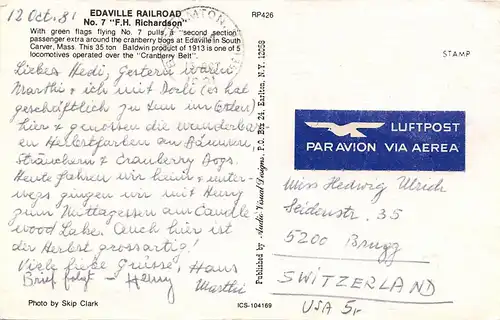 12 Oct. 81
EDAVILLE RAILROAD
No. 7 "F.H. Richardson"
With green flags flying No. 7 pulls a "second section"
passenger extra around the cranberry bogs at Edaville in South
Carver, Mass. This 35 ton Baldwin product of 1913 is one of 5
locomotives operated over the "Cranberry Belt".
Liebes Hedi, Gestern waren
Marthi + ich mit Dorli (es hat
geschäftlich zu tun im Osten)
hier + genossen die wunderbar-
en Herbstfarben an Bäumen,
Sträuchern & Cranberry Bogs.
Heute fahren wir heim + unter-
wegs gingen wir mit Henry
zum Mittagessen am Candle
wood Lake. Auch hier ist
der Herbst grossartig!
Viele liebe Grüsse, Hans
Brief folgt - Henry Marthi
Photo by Skip Clark
ICS-104169
RP426
Published by Audio-Visual Designs, P.O. Box 24, Earlton, N.Y. 12058
STAMP
LUFTPOST
PAR AVION VIA AEREA
Miss Hedwig Ulrich
Seidenstr. 35
5200 Brugg
SWITZERLAND
USA 5r